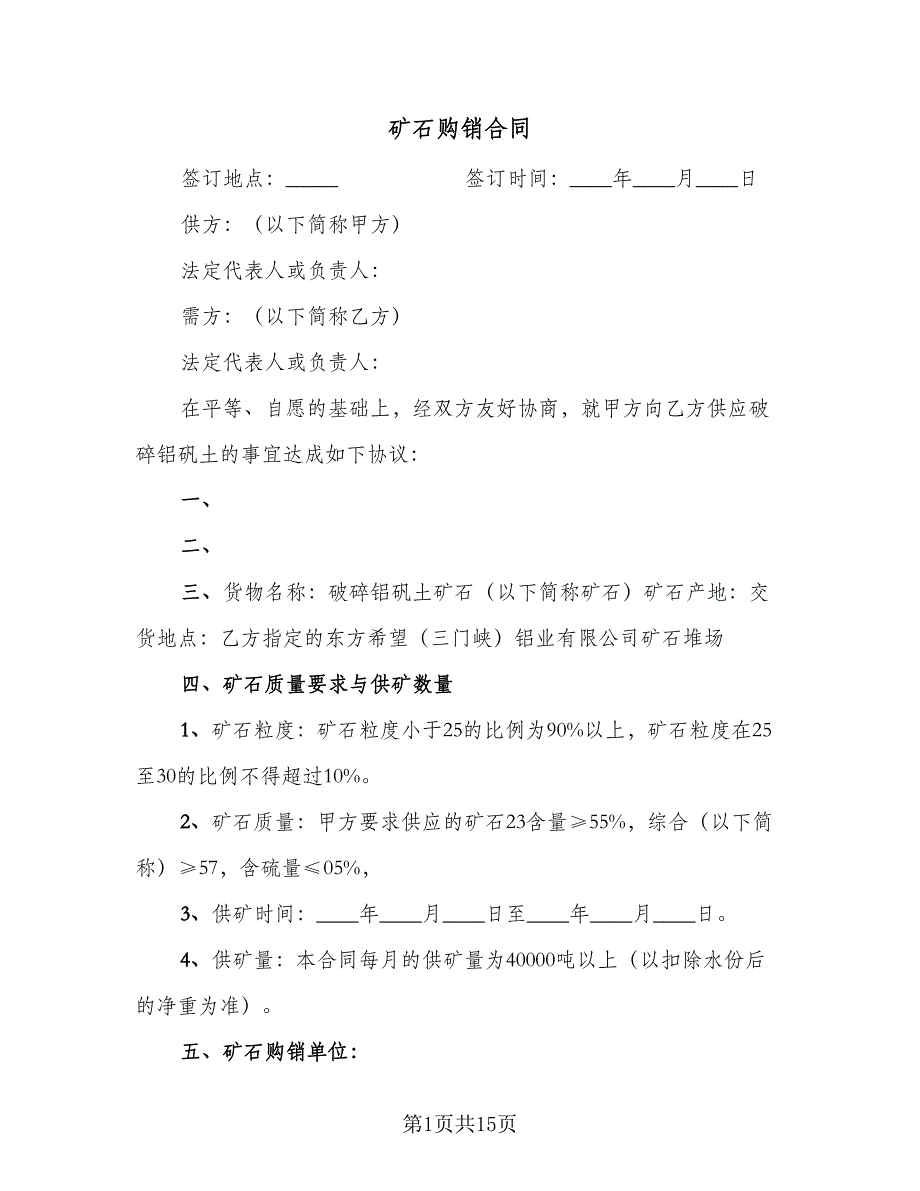 矿石购销合同
签订地点：_____ 签订时间：____年____月____日
供方：（以下简称甲方）
法定代表人或负责人：
需方：（以下简称乙方）
法定代表人或负责人：
在平等、自愿的基础上，经双方友好协商，就甲方向乙方供应破
碎铝矾土的事宜达成如下协议：
一、
二、
三、货物名称：破碎铝矾土矿石（以下简称矿石）矿石产地：交
货地点：乙方指定的东方希望（三门峡）铝业有限公司矿石堆场
四、矿石质量要求与供矿数量
1、矿石粒度：矿石粒度小于25的比例为90%以上，矿石粒度在25
至30的比例不得超过10%。
2、矿石质量：甲方要求供应的矿石23含量≥55%，综合（以下简
称）≥57，含硫量≤05%，
3、供矿时间：____年____月____日至____年____月____日。
4、供矿量：本合同每月的供矿量为40000吨以上（以扣除水份后
的净重为准）。
五、矿石购销单位：
第1页共15页